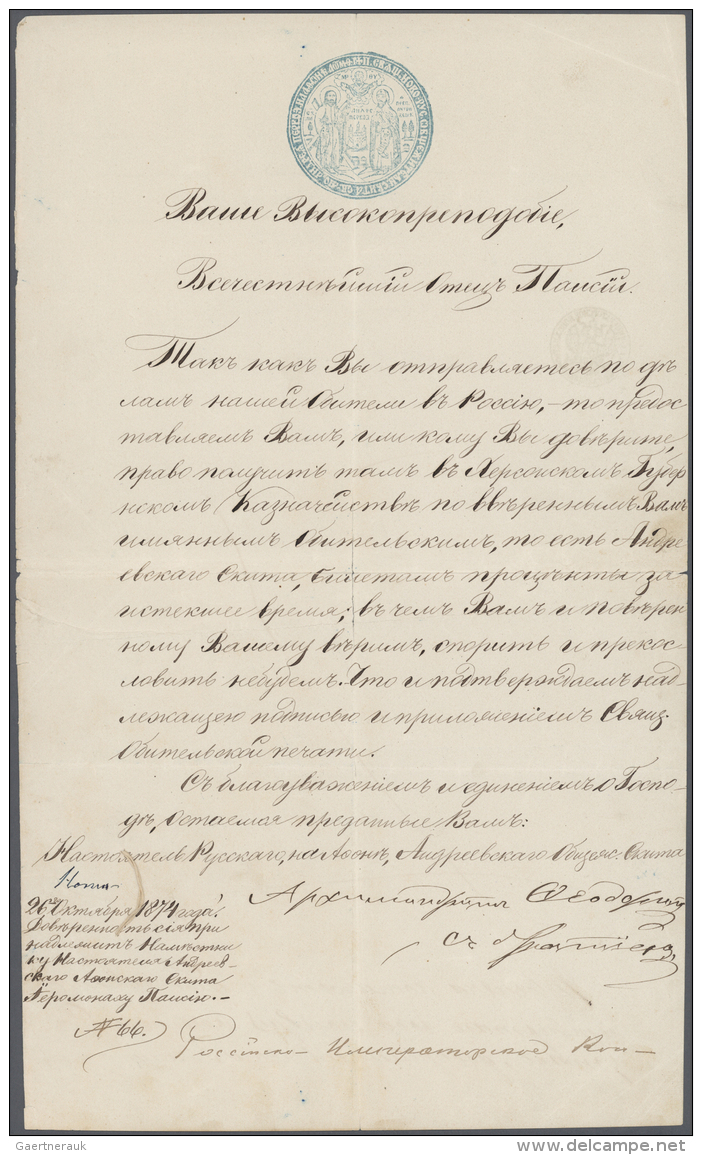 Ваше Высокопреподобіе,
Всечестнѣйшій Отецъ Паисій.
Такъ какъ Вы отправляетесь по дѣ
ламъ нашей Обители въ Россію, – то предос
тавляемъ Вамъ, или кому Вы довѣрите,
право получить тамъ въ Херсонскомъ Губер
нскомъ Казначействѣ по ввѣреннымъ Вамъ
имяннымъ Обительскимъ, то есть Андре
евскаго Скита, билетамъ проценты за
истекшее время; въ чемъ Вамъ и повѣрен
ному Вашему вѣримъ, спорить и прекос
ловить небудемъ. Что и подтверждаемъ над
лежащею подписью и приложеніемъ Свящ.
Обительской печати.
Съ благоуваженіемъ и единеніемъ о Госпо-
дѣ, Остаемся преданные Вамъ:
Настоятель Русскаго, на Аѳонѣ, Андреевскаго Общеж. Скита
Архимандритъ Ѳеодоритъ
съ братіею,
26го Октября 1874 года.
Довѣренность сія при
надлежитъ Намѣстни
ку Настоятеля Андреев-
скаго Аѳонскаго Скита
Іеромонаху Паисію. –
№ 66.
Россійско – Императорское Кон –
Gaertnerauk
www.delcampe.net